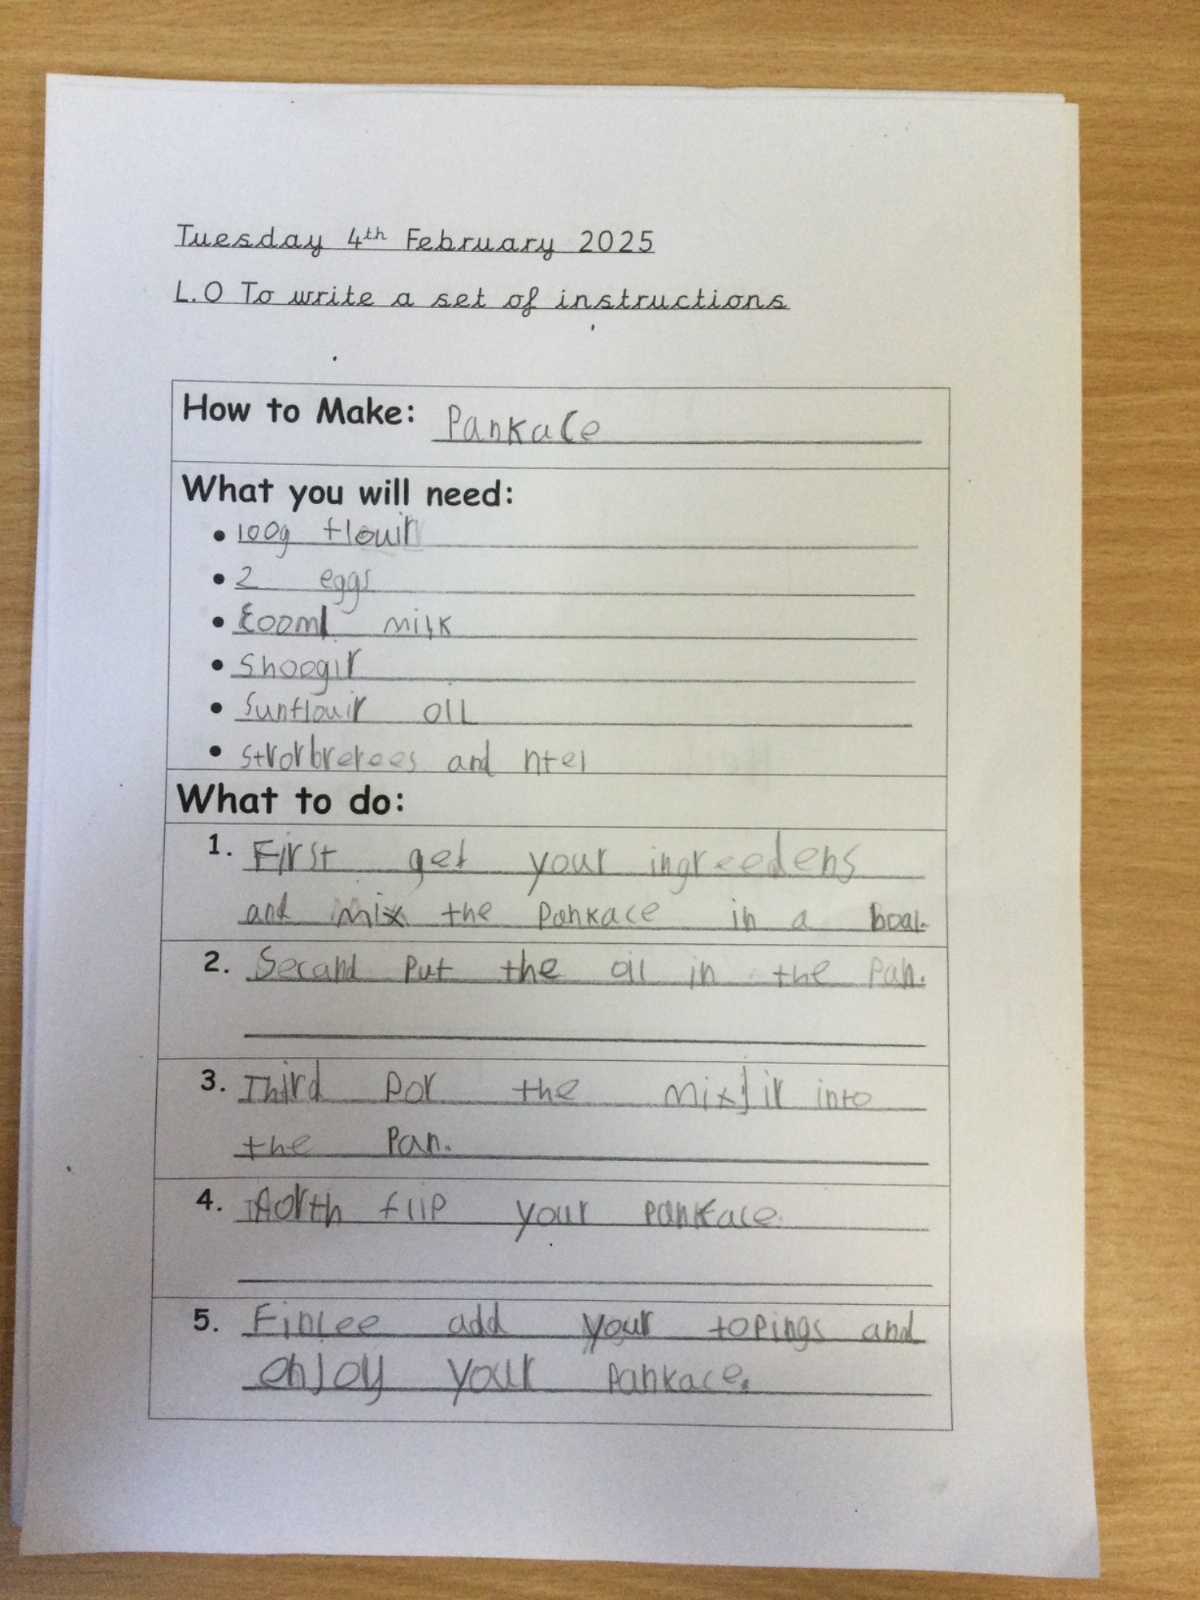 Tuesday 4th February 2025
L.O To write a set of instructions
How to Make: Pankace
What you will need:
• 100g flouir
• 2 eggs
• milk
• Shoogir
• Sunflouir oil
• strorbrerees and ntel
What to do:
1. First get your ingreedens
and mix the Pankace in a boal.
2. Secand Put the oil in the Pan.
3. Third Por the mixjir into
the Pan.
4. forth flip your pankace.
5. Finlee add your topings and
enjoy your Pankace.